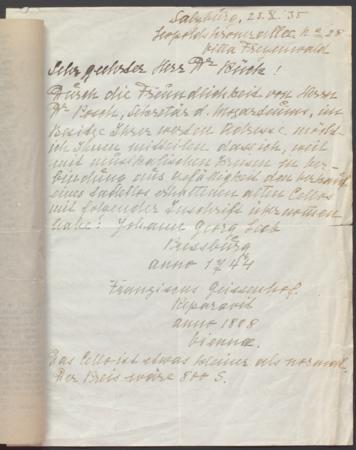 Salzburg, 23.X.35
Leopoldskronerallee No 28
Villa Freuenwald
Sehr geehrter Herr Dr Rück!
Durch die Freundlichkeit von Herrn
Dr Bosch, Sekretär d. Mozarteums, im
Besitze Ihrer werten Adresse, möchte
ich Ihnen mitteilen dass ich, weil
mit musikalischen Kreisen in Ver-
bindung aus Gefälligkeit den Verkauf
eines tadellos erhaltenen alten Cellos
mit folgender Inschrift übernommen
habe: Johann Georg
Pressburg
anno 1744
Franziscus Geissenhof
Reparavit
anno 1808
Viennæ.
Das Cello ist etwas kleiner als normal.
Der Preis wäre 800 S.